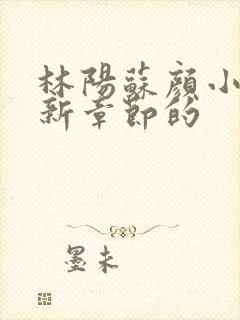 林陽蘇顏小
新章節的
墨未